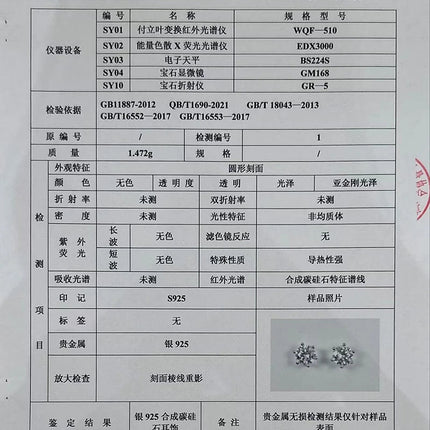 编 号 名 称 规 格 型 号
仪器设备
SY01 付立叶变换红外光谱仪 WQF—510
SY02 能量色散 X 荧光光谱仪 EDX3000
SY03 电子天平 BS224S
SY04 宝石显微镜 GM168
SY10 宝石折射仪 GR—5
检验依据
GB11887-2012 QB/T1690-2021 GB/T 18043—2013
GB/T16552—2017 GB/T16553—2017
原 编 号 / 检测编号 1
质 量 1.472g 规 格 /
检测项目
外观特征 圆形刻面
颜 色 无色 透 明 度 透明 光泽 亚金刚光泽
折 射 率 未测 双折射率 未测
密 度 未测 光性特征 非均质体
紫 外 荧 光 长波 无色 滤色镜反应 无
短波 无色 特殊性质 导热性强
吸收光谱 未测 红外光谱 合成碳硅石特征谱线
印 记 S925 样品照片
标 签 无
贵金属 银 925
放大检查 刻面棱线重影
鉴 定 结 果 银 925 合成碳硅石耳饰 备 注 贵金属无损检测结果仅针对样品表面